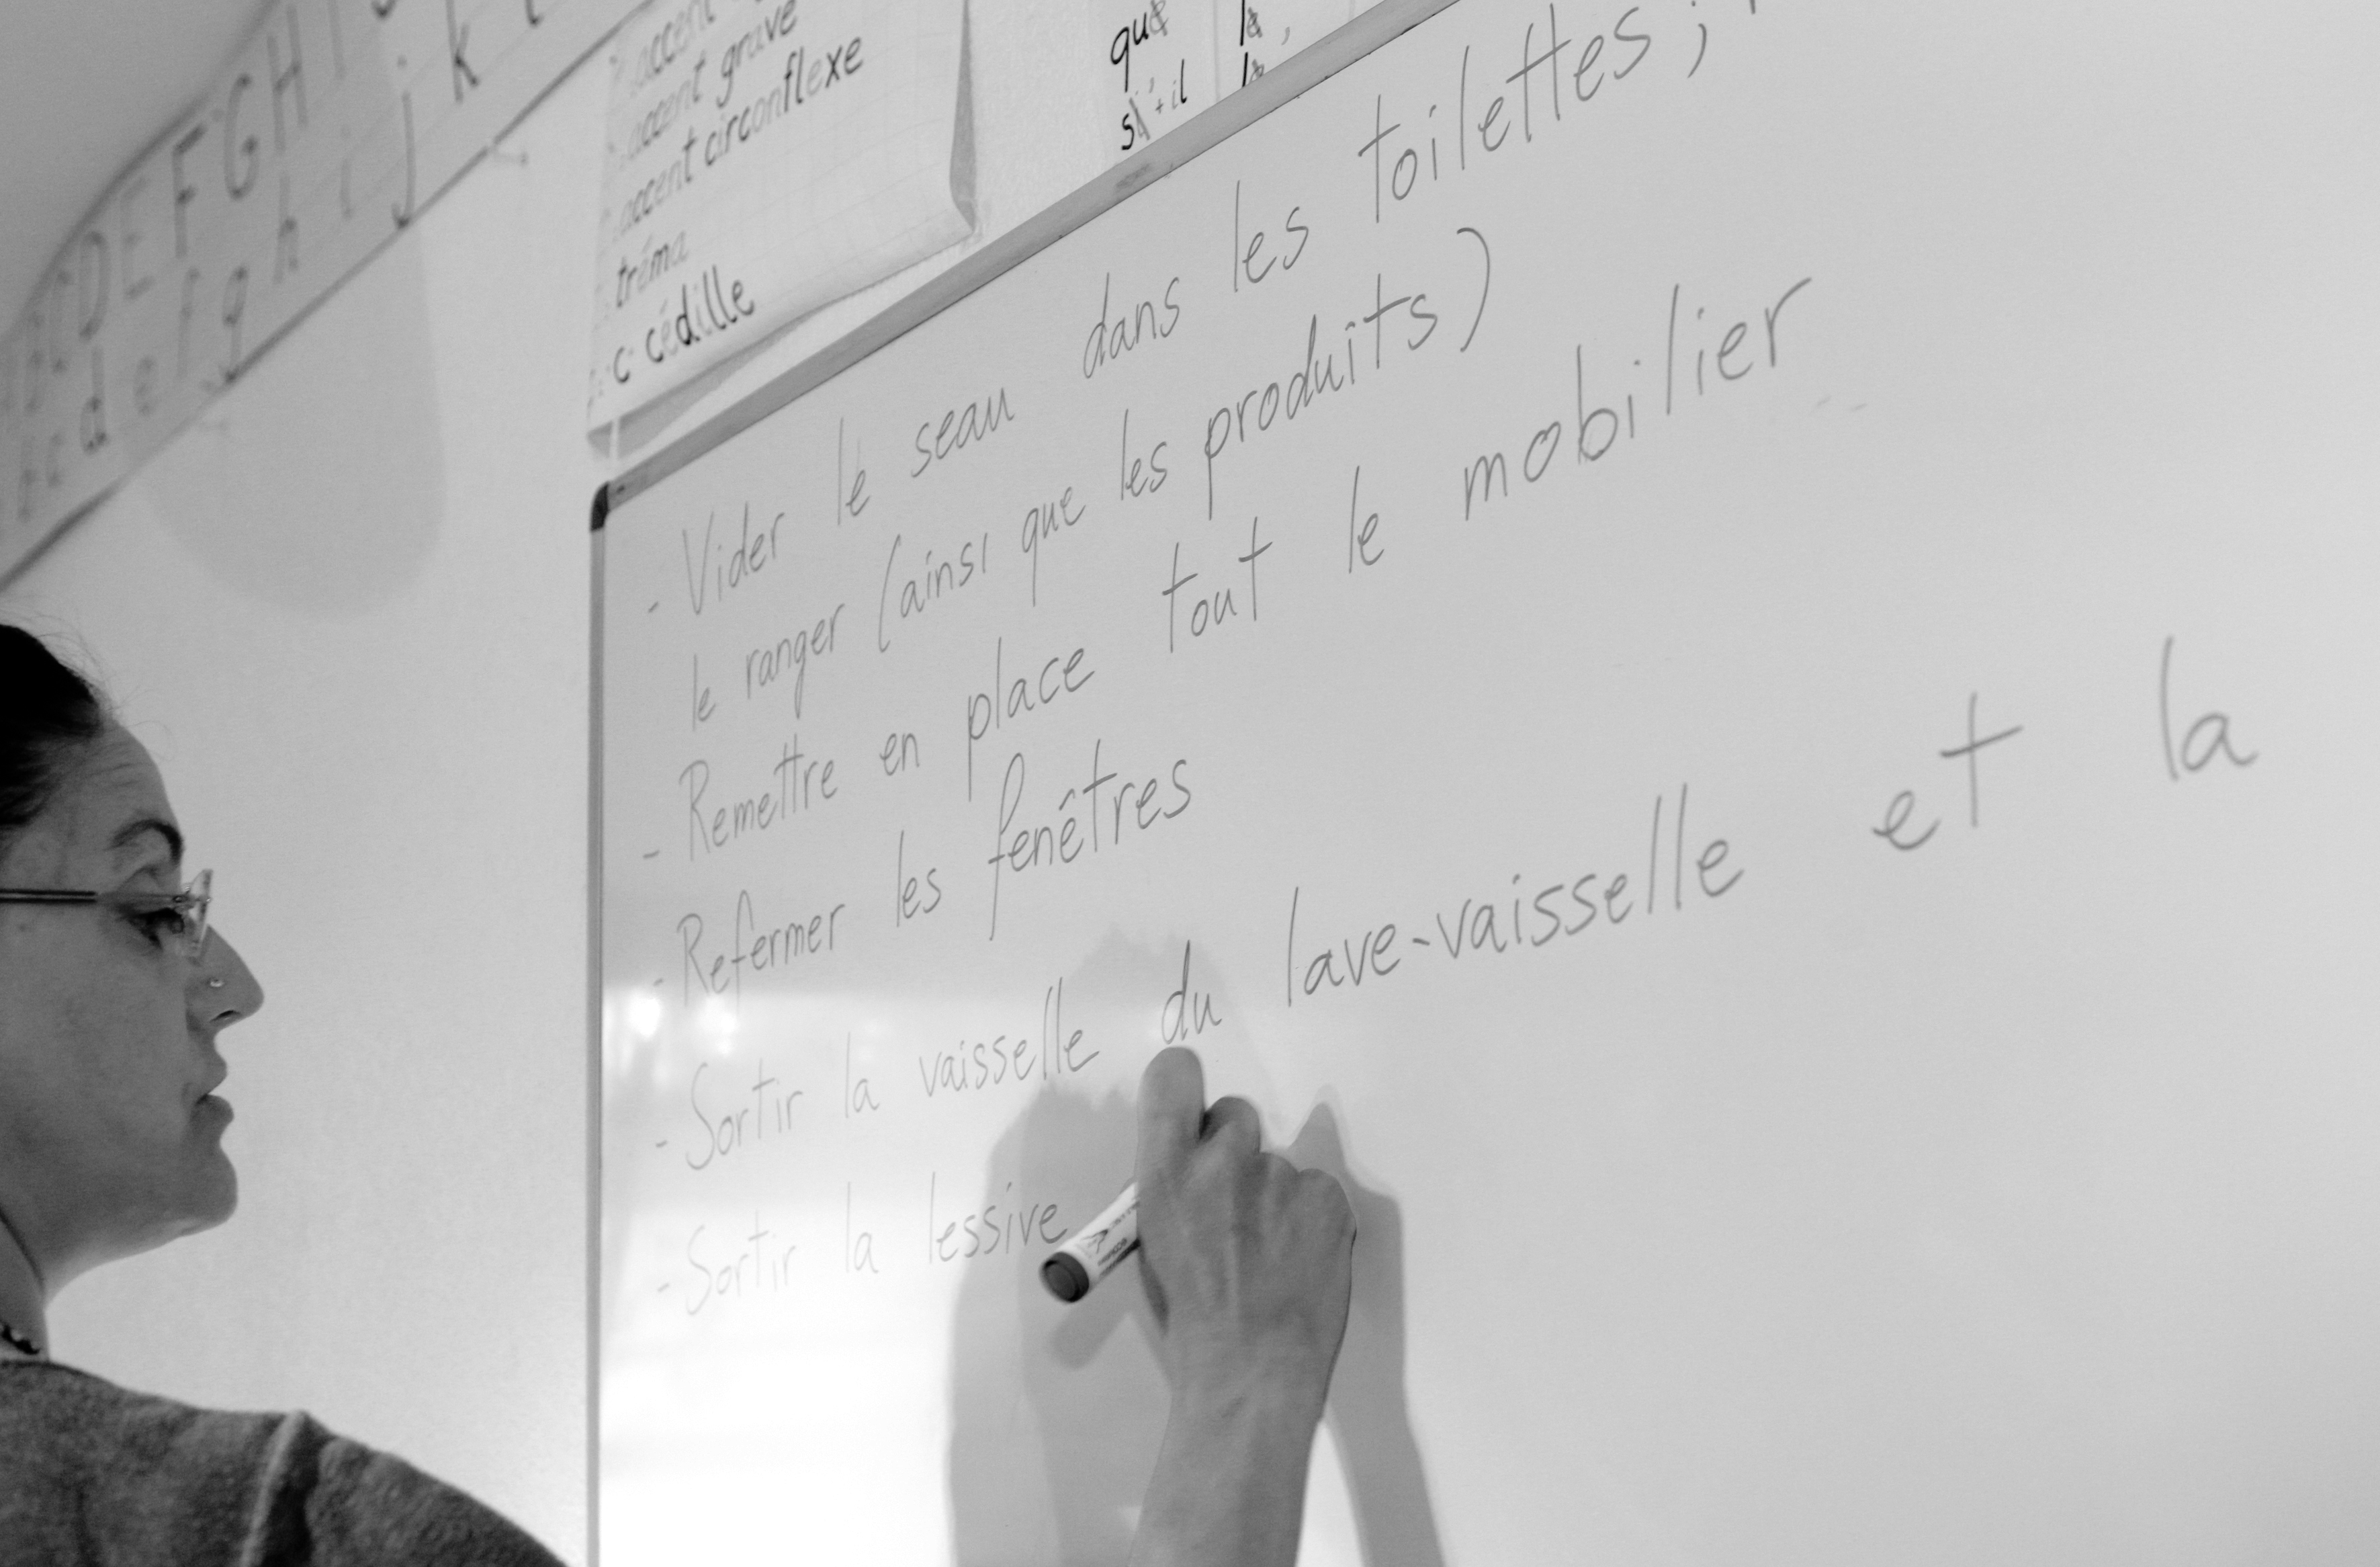 A B C D E F G H I
c d e f g h i j k l
accent
accent grave
accent circonflexe
tréma
ç : cédille
que
si + il
- Vider le seau dans les toilettes ;
le ranger (ainsi que les produits)
- Remettre en place tout le mobilier
- Refermer les fenêtres
- Sortir la vaisselle du lave-vaisselle et la
- Sortir la lessive